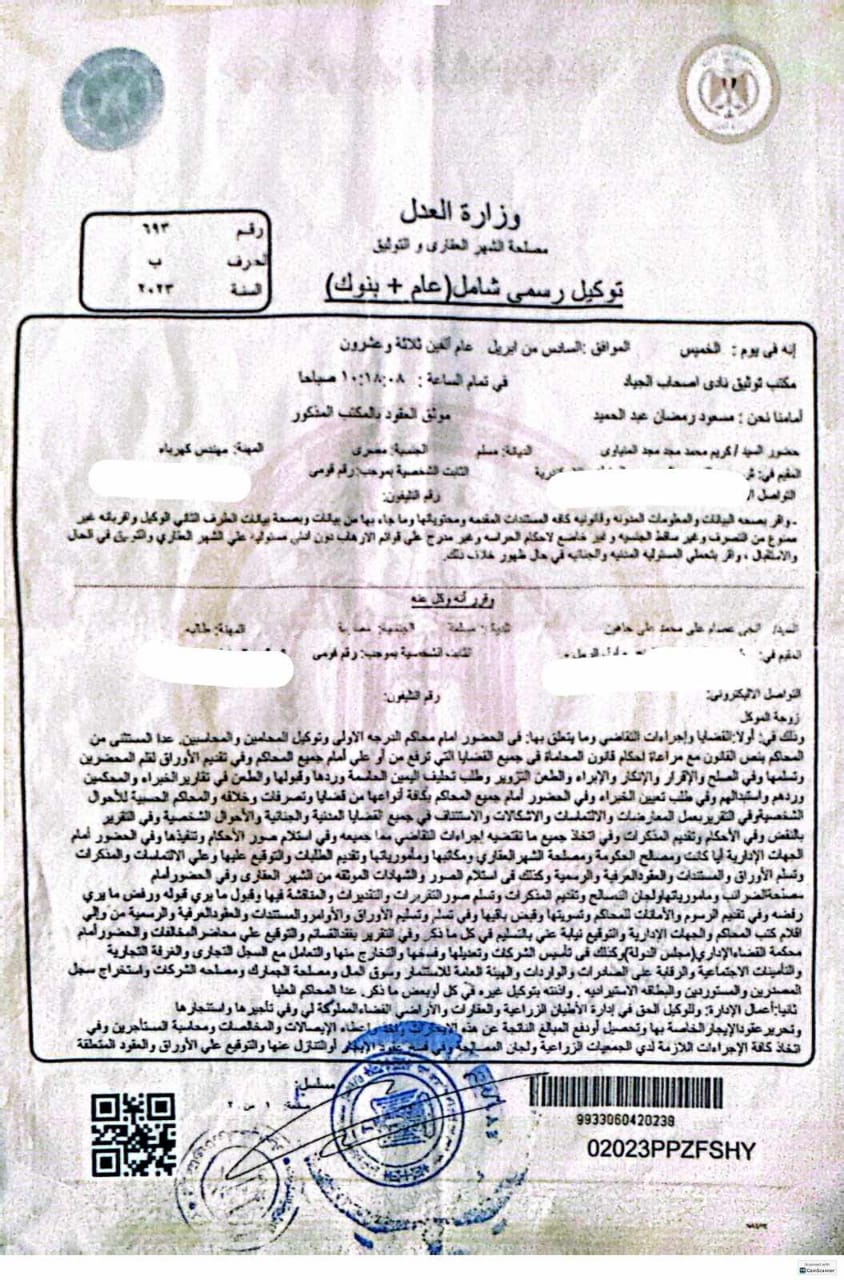 وزارة العدل
مصلحة الشهر العقارى و التوثيق
توكيل رسمى شامل(عام + بنوك)
رقم ٦٩٣
الحرف ب
السنة ٢٠٢٣
إنه فى يوم : الخميس الموافق :السادس من ابريل عام ألفين ثلاثة وعشرون
مكتب توثيق نادى اصحاب الجياد فى تمام الساعة : ١٠:١٨:٠٨ صباحا
أمامنا نحن : مسعود رمضان عبد الحميد موثق العقود بالمكتب المذكور
حضور السيد / كريم محمد مجد مجد المنياوى الديانة: مسلم الجنسية: مصرى المهنة: مهندس كهرباء
المقيم في: الثابت الشخصية بموجب: رقم قومى
التواصل رقم التليفون:
. واقر بصحه البيانات والمعلومات المدونه وقانونيه كافه المستندات المقدمه ومحتوياتها وما جاء بها من بيانات وبصحة بيانات الطرف الثاني الوكيل واقربانه غير
ممنوع من التصرف وغير ساقط الجنسيه و غير خاضع لاحكام الحراسه وغير مدرج علي قوائم الارهاب دون ادنى مسئوليه علي الشهر العقاري والتوثيق في الحال
والاستقبال ، واقر بتحملي المسئوليه المدنيه والجنائيه في حال ظهور خلاف ذلك.
وقرر أنه وكل عنه
السيد/ عصام على محمد على الديانة: مسلمة الجنسية: مصرية المهنة: طالبه
المقيم في: الثابت الشخصية بموجب: رقم قومى
التواصل الاليكتروني: رقم التليفون:
زوجة الموكل
وذلك في: أولا:القضايا وإجراءات التقاضي وما يتعلق بها: فى الحضور امام محاكم الدرجه الاولى وتوكيل المحامين والمحاسبين. عدا المستثنى من
المحاكم بنص القانون مع مراعاة احكام قانون المحاماة فى جميع القضايا التي ترفع من أو علي أمام جميع المحاكم وفي تقديم الأوراق لقلم المحضرين
وتسلمها وفي الصلح والإقرار والإنكار والإبراء والطعن بالتزوير وطلب تحليف اليمين الحاسمة وردها وقبولها والطعن في تقارير الخبراء والمحكمين
وردهم واستبدالهم وفي طلب تعيين الخبراء وفي الحضور أمام جميع المحاكم بكافة أنواعها من قضايا وتصرفات وخلافه والمحاكم الحسبية للأحوال
الشخصيةوفي التقرير بعمل المعارضات والالتماسات والاشكالات والاستئناف في جميع القضايا المدنية والجنائية والأحوال الشخصية وفي التقرير
بالنقض وفي الأحكام وتقديم المذكرات وفي اتخاذ جميع ما تقتضيه إجراءات التقاضي مما جميعه وفي استلام صور الأحكام وتنفيذها وفي الحضور أمام
الجهات الإدارية أيا كانت ومصالح الحكومة ومصلحة الشهر العقاري ومكاتبها ومأمورياتها وتقديم الطلبات والتوقيع عليها وعلي الالتماسات والمذكرات
وتسلم الأوراق والمستندات والعقودالعرفية والرسمية وكذلك فى استلام الصور والشهادات الموثقه من الشهر العقارى وفى الحضورأمام
مصلحةالضرائب ومأمورياتهاولجان التصالح وتقديم المذكرات وتسلم صور التقريرات والتقديرات والمناقشة فيها وقبول ما يري قبوله ورفض ما يري
رفضه وفي تقديم الرسوم والأمانات للمحاكم وتسويتها وقبض باقيها وفي تسلم وتسليم الأوراق والأوامر والمستندات والعقودالعرفية الرسمية من وإلي
اقلام كتب المحاكم والجهات الإدارية والتوقيع نيابة عني بالتسليم في كل ما ذكر وفي التقرير بفقدالقسائم وفي التوقيع علي محاضر المخالفات والحضور أمام
محكمة القضاءالإداري(مجلس الدولة)وكذلك فى تأسيس الشركات وتعديلها وفسخها والتخارج منها والتعامل مع السجل التجارى والغرفة التجارية
والتأمينات الاجتماعية والرقابة على الصادرات والواردات والهيئة العامة للاستثمار وسوق المال ومصلحة الجمارك ومصلحه الشركات واستخراج سجل
المصدرين والمستوردين والبطاقه الاستيراديه . واذنته بتوكيل غيره في كل أوبعض ما ذكر. عدا المحاكم العليا
ثانيا:أعمال الإدارة: وللوكيل الحق في إدارة الأطيان الزراعية والعقارات والأراضي الفضاءالمملوكة لي وفي تأجيرها واستئجارها
وتحريرعقودالإيجارالخاصة بها وتحصيل أودفع المبالغ الناتجة عن هذه إعطاء الإيصالات والمخالصات ومحاسبة المستأجرين وفي
اتخاذ كافة الإجراءات اللازمة لدي الجمعيات الزراعية ولجان المصالحة وفي فسخ عقود الإيجار أوالتنازل عنها والتوقيع علي الأوراق والعقود المتعلقة
مسلسل:
9933060420239
02023PPZFSHY
Scanned with
CamScanner